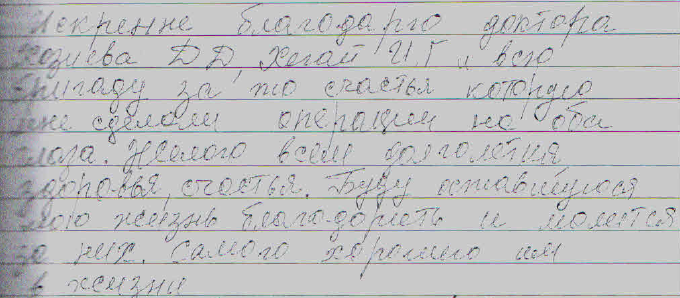 Искренне благодарю доктора
Козиева Д Д, Хегай И. Г и всю
бригаду за то счастья которую
мне сделали операции на оба
глаза. Желаю всем долголетия,
здоровья, счастья. Буду оставшуюся
мою жизнь благодарить и молится
за них. Самого хорошего им
в жизни